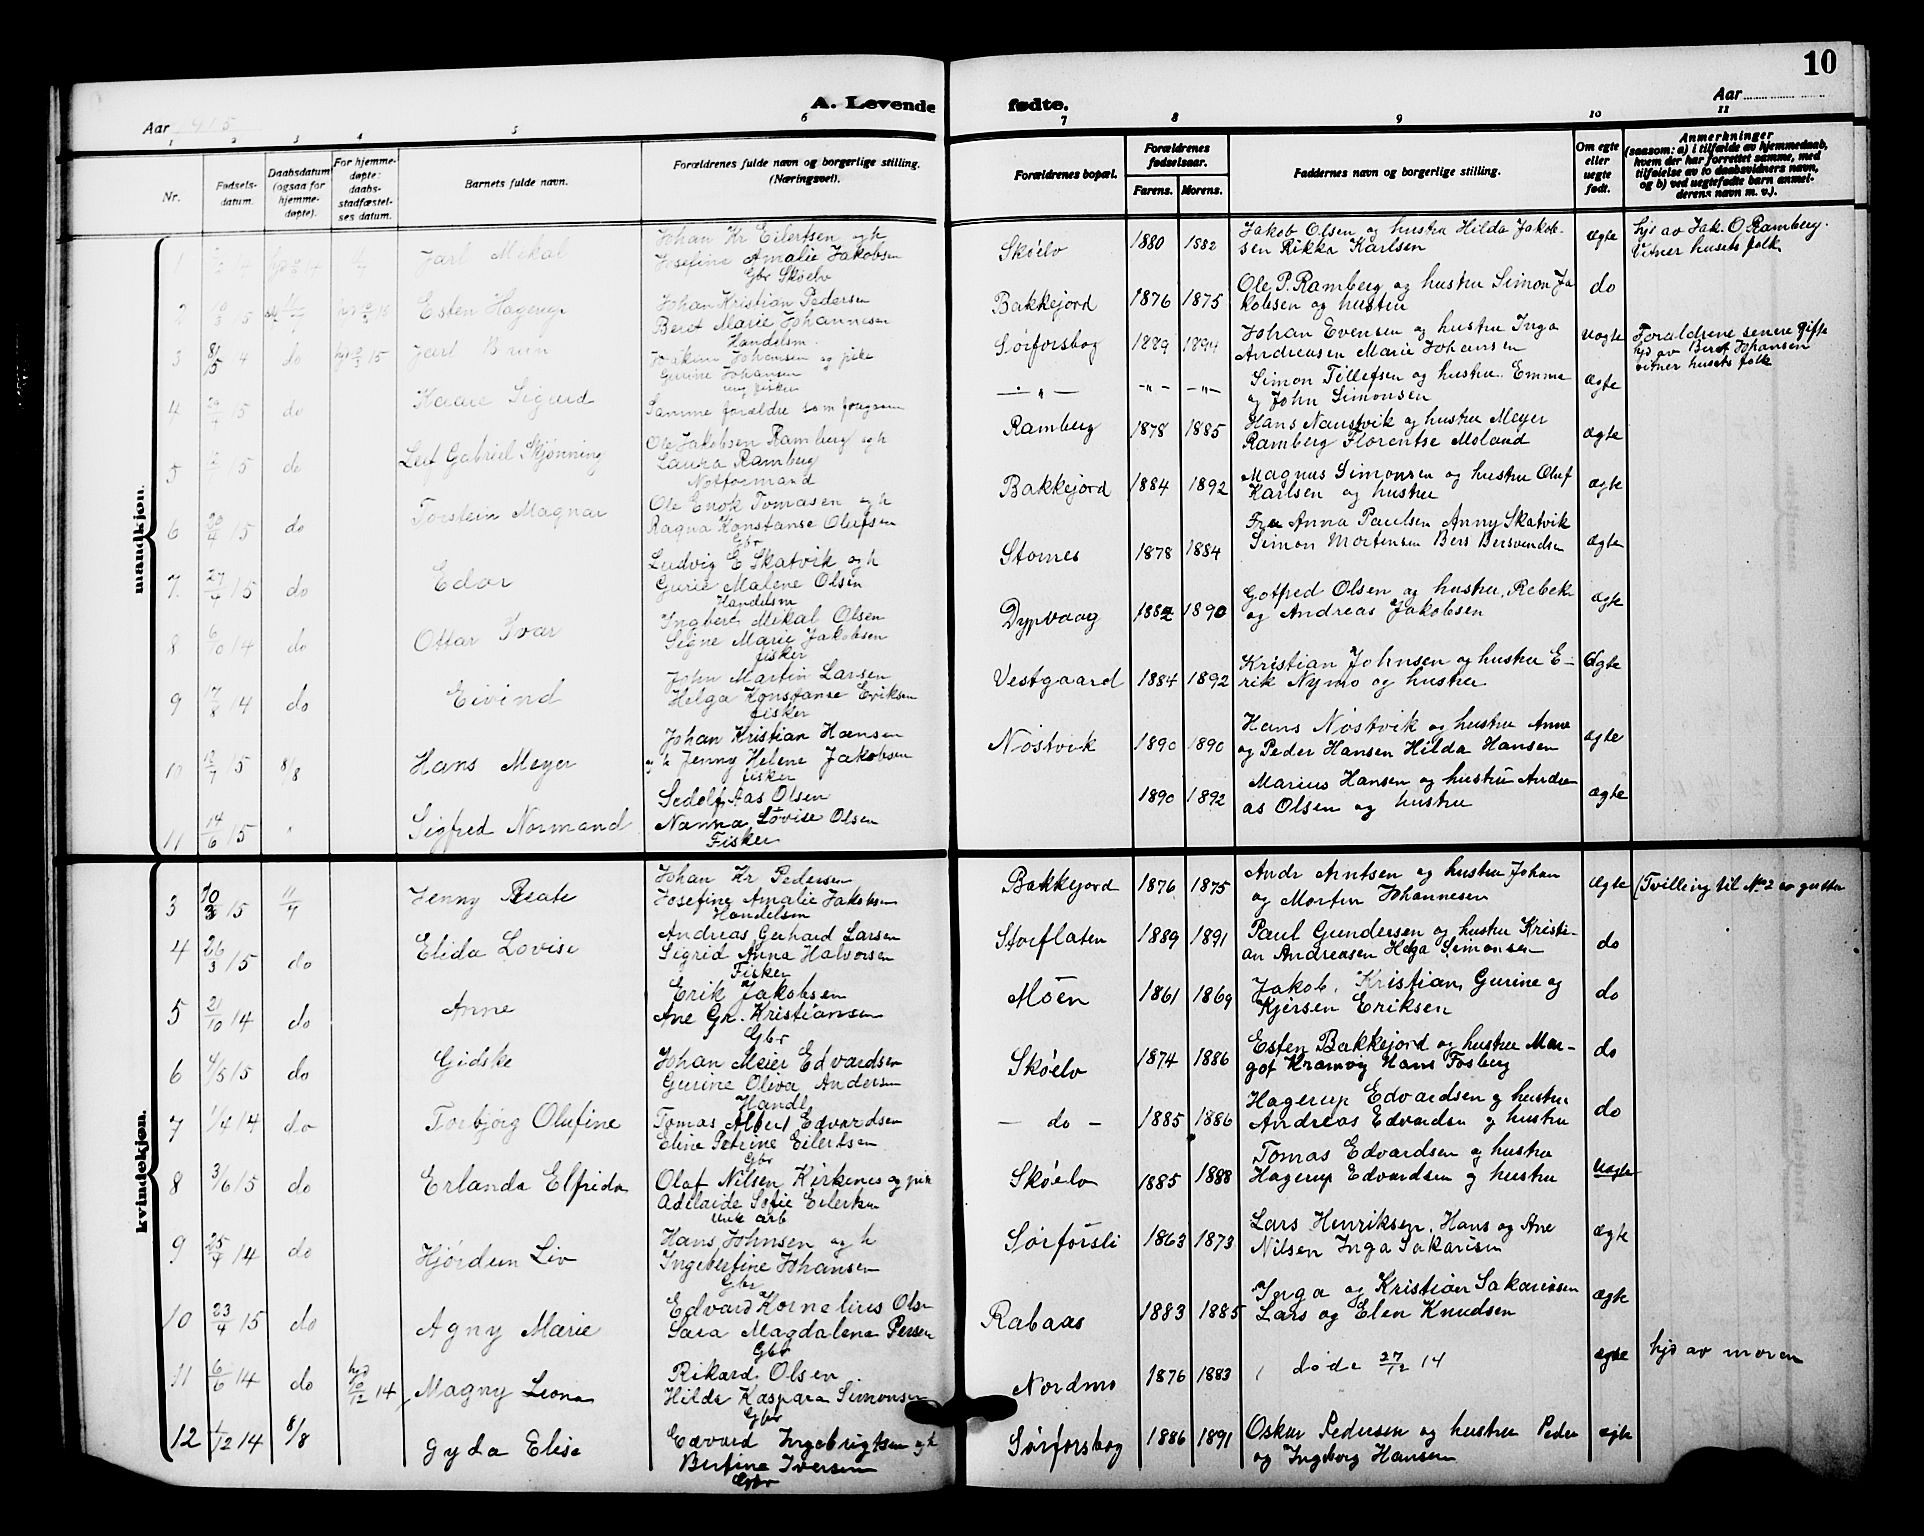 10
A. Levende fødte.
Aar 1915
Aar
1 2 3 4 5 6 7 8 9 10 11
Nr.
Fødsels-
datum.
Daabsdatum
(ogsaa for
hjemme-
døpte).
For hjemme-
døpte:
daabs-
stadfæstel-
ses datum.
Barnets fulde navn.
Forældrenes fulde navn og borgerlige stilling.
(Næringsvei).
Forældrenes bopæl.
Forældrenes
fødselsaar.
Farens. Morens.
Faddernes navn og borgerlige stilling.
Om egte
eller
uegte
født.
Anmerkninger
(saasom: a) i tilfælde av hjemmedaab,
hvem der har forrettet samme, med
tilføielse av to daabsvidners navn,
og b) ved uegtefødte barn anmel-
derens navn m. v.).
mandkjøn.
1 Jarl Mikal
Johan Kr Eilertsen og h
Josefine Amalie Jakobsen
Gbr Skøelv
Skøelv 1880 1882
Jakob Olsen og hustru Hilda Jakob-
sen Rikka Karlsen
ægte
hjd av Jak. O. Ramberg.
Vitner husets folk
2 10/3 15 Esten Hagerup
Johan Kristian Pedersen
Beret Marie Johannesen
Handelsm.
Bakkejord 1876 1875
Ole P. Ramberg og hustru Simon Ja
kobsen og hustru
do
3 8/5 4 do Jarl Brun
Joakim Johansen og pike
Gurine Johansen
ung fisker
Sørforsbog 1889 1894
Johan Evensen og hustru Inga
Andreasen Marie Johansen
uægte
Forældrene senere gifte
hjd av Beret Johansen
vitner husets folk
4 15 do Kaare Sigurd
Samme forældre som foregaaende
— „ — -„- -„-
Simon Tillefsen og hustru Emma
og John Simonsen
ægte
5 15 do Leif Gabriel Skjønning
Ole Jakobsen Ramberg og h
Laura Ramberg
Notformand
Ramberg 1878 1885
Hans Naustvik og hustru Meyer
Ramberg Florentse Moland
ægte
6 20/4 15 do Torstein Magnar
Ole Enok Tomasen og h
Ragna Konstanse Olufsen
Gbr
Bakkejord 1884 1892
Magnus Simonsen og hustru Oluf
Karlsen og hustru
ægte
7 27/4 15 do Edor
Ludvig E Skatvik og h
Gurie Malene Olsen
Handelsm
Stomes 1878 1884
Fru Anna Paulsen Anny Skatvik
Simon Mortensen Bers Bersvendsen
ægte
8 6/10 14 do Ottar Ivar
Ingbert Mikal Olsen
Signe Marie Jakobsen
fisker
Dypvaag 1882 1890
Gotfred Olsen og hustru, Rebeka
og Andreas Jakobsen
ægte
9 17/8 14 do Eivind
John Martin Larsen
Helga Konstanse Eriksen
fisker
Vestgaard 1884 1892
Kristian Johnsen og hustru E-
rik Nymo og hustru
ægte
10 12/7 15 8/8 Hans Meyer
Johan Kristian Hansen
og h Jenny Helene Jakobsen
fisker
Nøstvik 1890 1890
Hans Nøstvik og hustru Anne
og Peder Hansen Hilda Hansen
ægte
11 14/6 15 " Sigfred Normand
Sedolf Aas Olsen
Nanna Lovise Olsen
Fisker
1890 1892
Marius Hansen og hustru Andre
as Olsen og hustru
ægte
kvindekjøn.
3 10/3 15 11/7 Jenny Beate
Johan Kr Pedersen
Josefine Amalie Jakobsen
Handelsm
Bakkejord 1876 1875
Andr Arntsen og hustru Johan
og Morten Johannesen
ægte
(Tvilling til No 2 av gutter
4 26/3 15 do Elida Lovise
Andreas Gerhard Larsen
Sigrid Anna Halvorsen
Fisker
Storflaten 1889 1891
Paul Gundersen og hustru Kristi-
an Andreasen Helga Simonsen
do
5 21/10 14 do Anne
Erik Jakobsen
Ane Gr. Kristiansen
Gbr
Moen 1861 1869
Jakob, Kristian, Gurine og
Kjersen Eriksen
do
6 4/5 15 do Gidske
Johan Meier Edvardsen
Gurine Oliva Andersen
Handl
Skøelv 1874 1886
Esten Bakkejord og hustru Mar-
got Kramvig Hans Fosberg
do
7 1/4 14 do Torbjørg Olufine
Tomas Albert Edvardsen
Eline Petrine Eilertsen
Gbr
— do — 1885 1886
Hagerup Edvardsen og hustru
Andreas Edvardsen og hustru
do
8 3/6 15 do Erlanda Elfrida
Olaf Nilsen Kirkenes og pike
Adelaide Sofie Eilertsen
Unk arb
Skøelv 1885 1888
Tomas Edvardsen og hustru
Hagerup Edvardsen og hustru
uægte
9 25/4 14 do Hjørdun Liv
Hans Johnsen og h
Ingebertine Johansen
Gbr
Sørforsli 1863 1873
Lars Henriksen, Hans og Ane
Nilsen Inga Sakarisen
ægte
10 23/4 15 do Agny Marie
Edvard Kornelius Olsn
Sara Magdalena Persen
Gbr
Rabaas 1883 1885
Inga og Kristian Sakariasen
Lars og Elen Knudsen
ægte
11 6/6 14 do hjd 10/12 14 Magny Leona
Rikard Olsen
Hilda Kaspara Simonsen
Gbr
Nordmo 1876 1883
døde 27/12 14
ægte
hjd av moren
12 1/12 14 8/8 Gyda Elise
Edvard Ingebrigtsen og h
Bertine Iversen
Gbr
Sørforsbog 1886 1891
Oskar Pedersen og hustru Peder
og Ingeborg Hansen
ægte